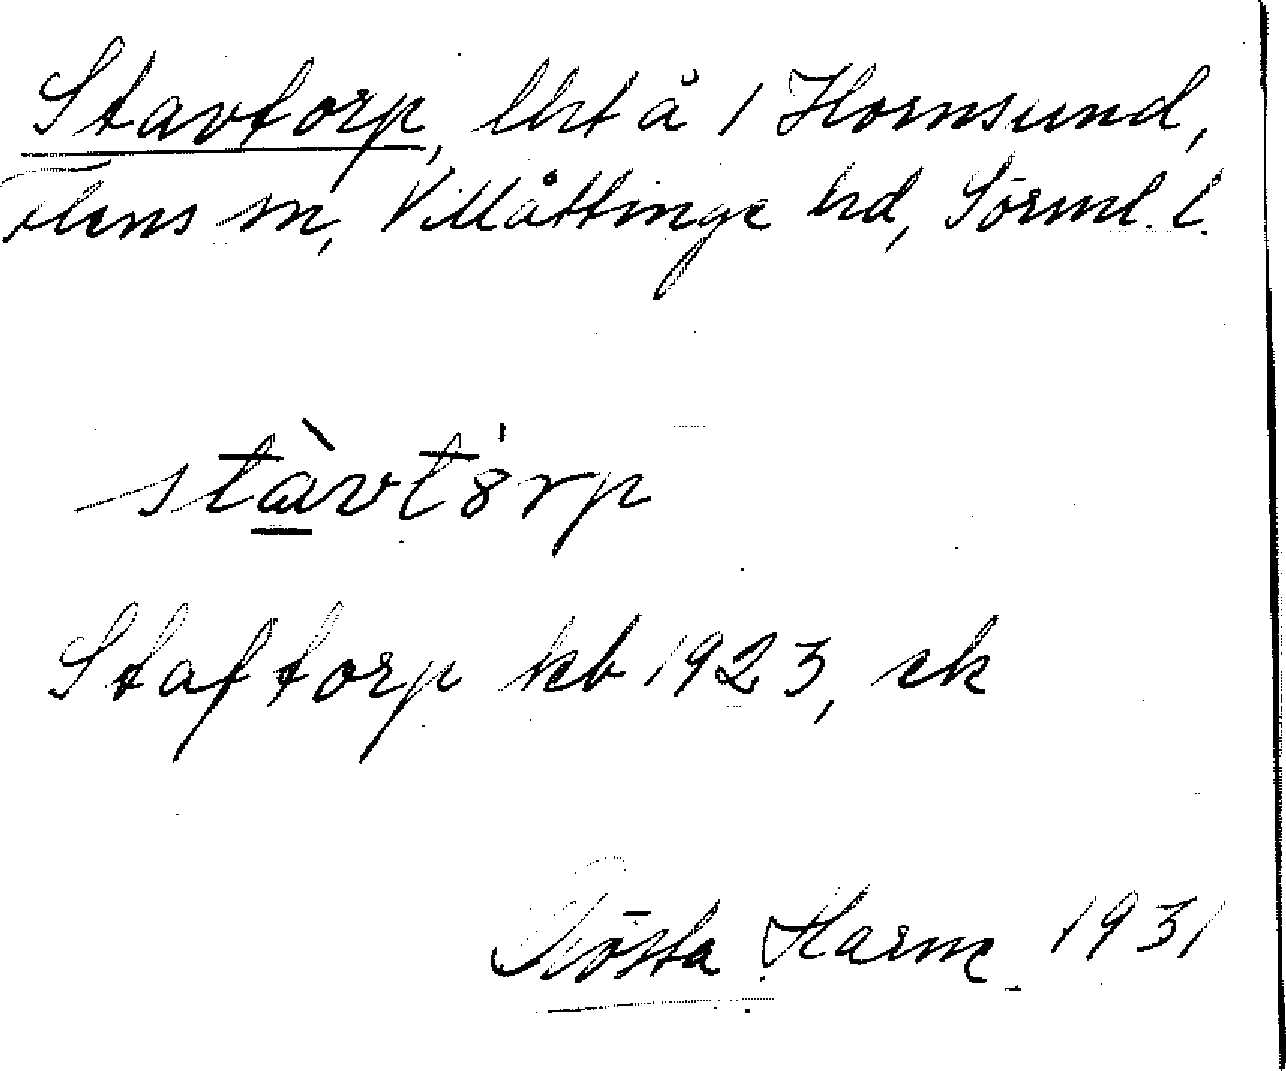 Stavtorp, lht å 1 Hornsund,
Flens sn, Villåttinge hd, Sörml. l.
stàvtºrp
Staftorp kb 1923, ek
Gösta Harme 1931